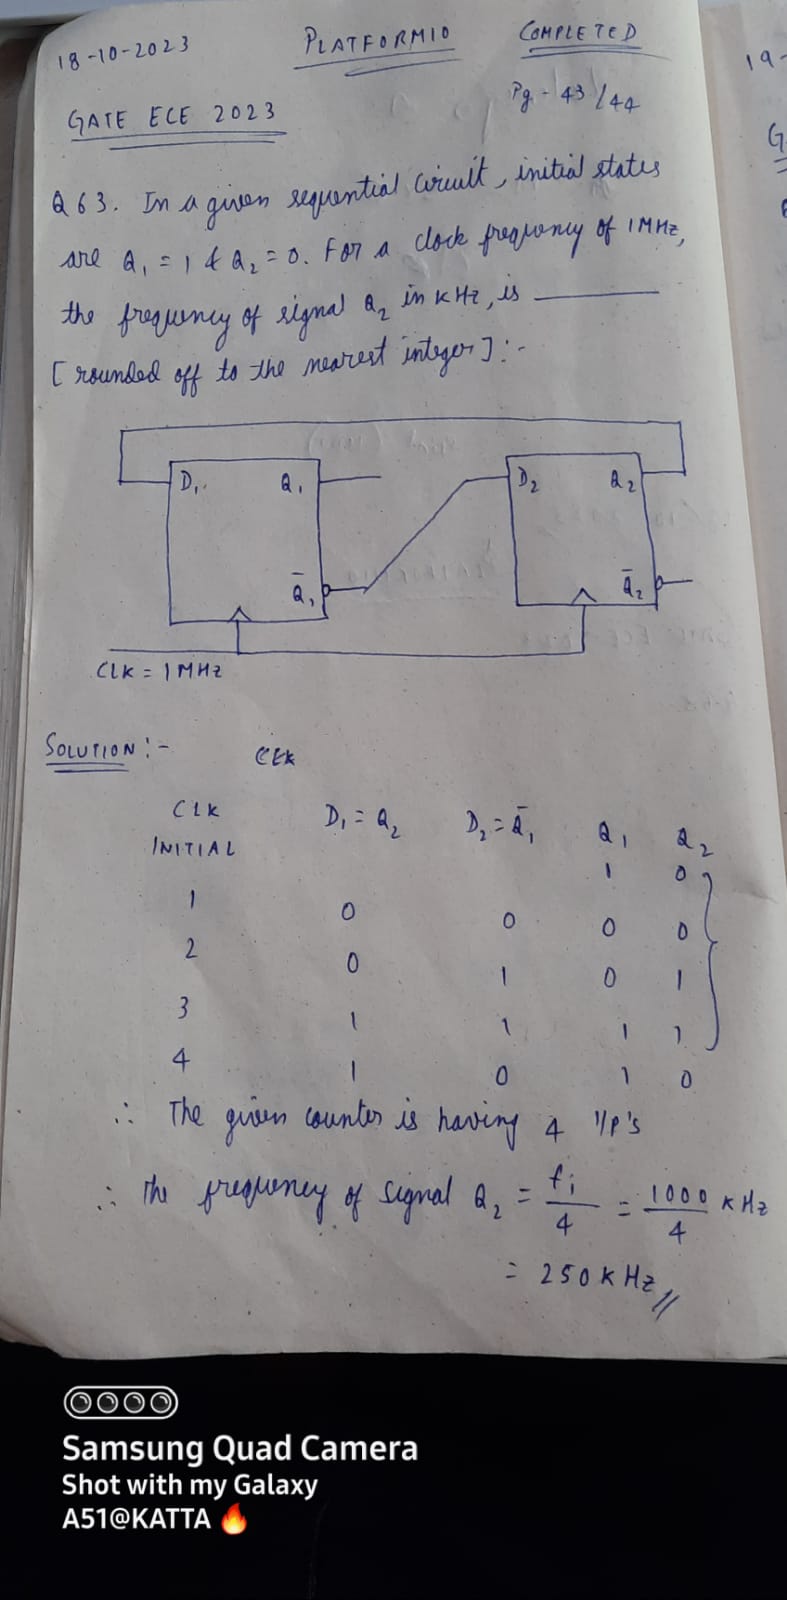 18-10-2023
PLATFORMIO
COMPLETED
Pg - 43/44
GATE ECE 2023
Q63. In a given sequential circuit, initial states
are Q₁ = 1 & Q₂ = 0. For a clock frequency of 1MHz,
the frequency of signal Q₂ in kHz, is ________
[rounded off to the nearest integer]:-
D₁ Q₁ D₂ Q₂
Q̅₁ Q̅₂
CLK = 1MHz
SOLUTION:- CLK
CLK D₁ = Q₂ D₂ = Q̅₁ Q₁ Q₂
INITIAL 1 0
1 0 0 0 0
2 0 1 0 1
3 1 1 1 1
4 1 0 1 0
∴ The given counter is having 4 i/p's
∴ The frequency of signal Q₂ = fi/4 = 1000/4 kHz
= 250kHz//
19-
G
Samsung Quad Camera
Shot with my Galaxy
A51@KATTA 🔥